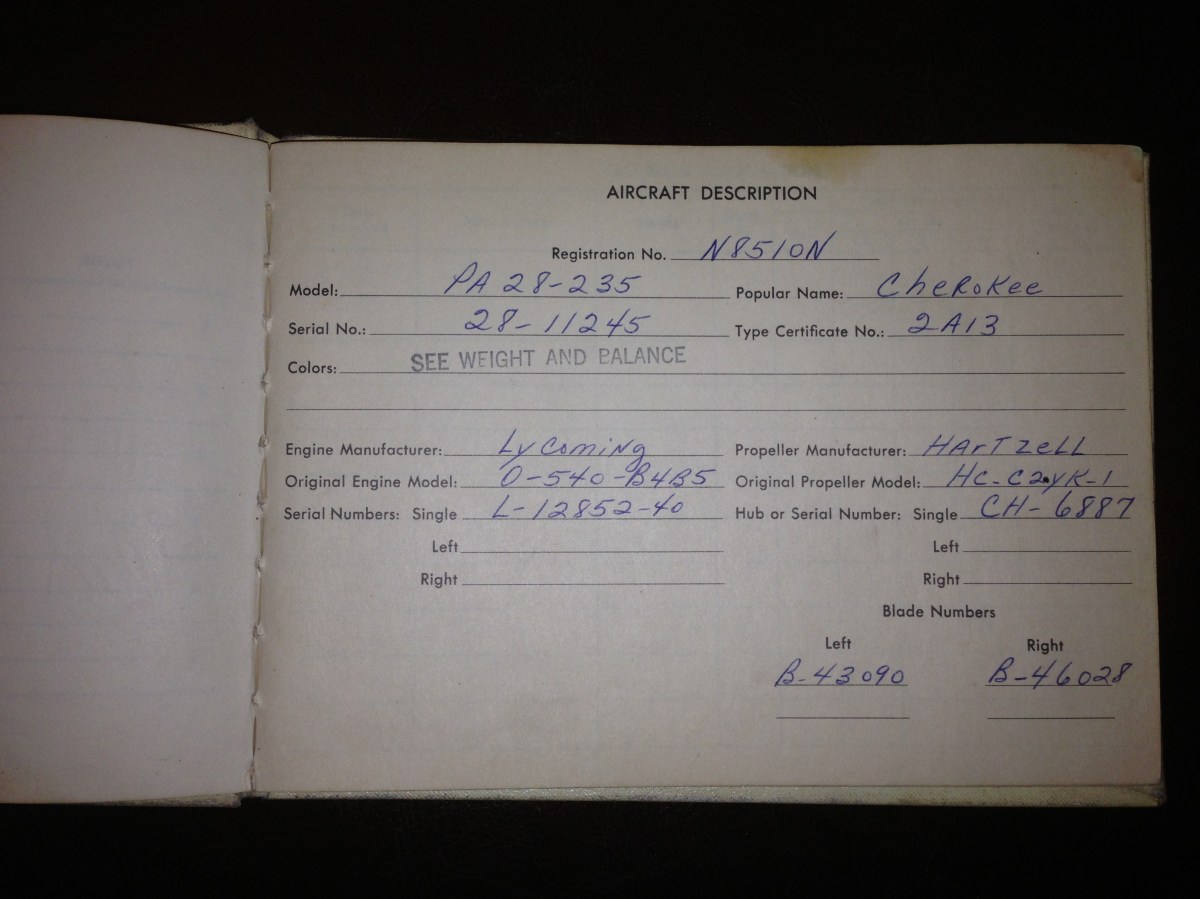 AIRCRAFT DESCRIPTION
Registration No. N8510N
Model: PA 28-235 Popular Name: Cherokee
Serial No.: 28-11245 Type Certificate No.: 2A13
Colors: SEE WEIGHT AND BALANCE
Engine Manufacturer: Lycoming Propeller Manufacturer: HArTzeLL
Original Engine Model: O-540-B4B5 Original Propeller Model: HC-C2YK-1
Serial Numbers: Single L-12852-40 Hub or Serial Number: Single CH-6887
Left Left
Right Right
Blade Numbers
Left Right
B-43090 B-46028